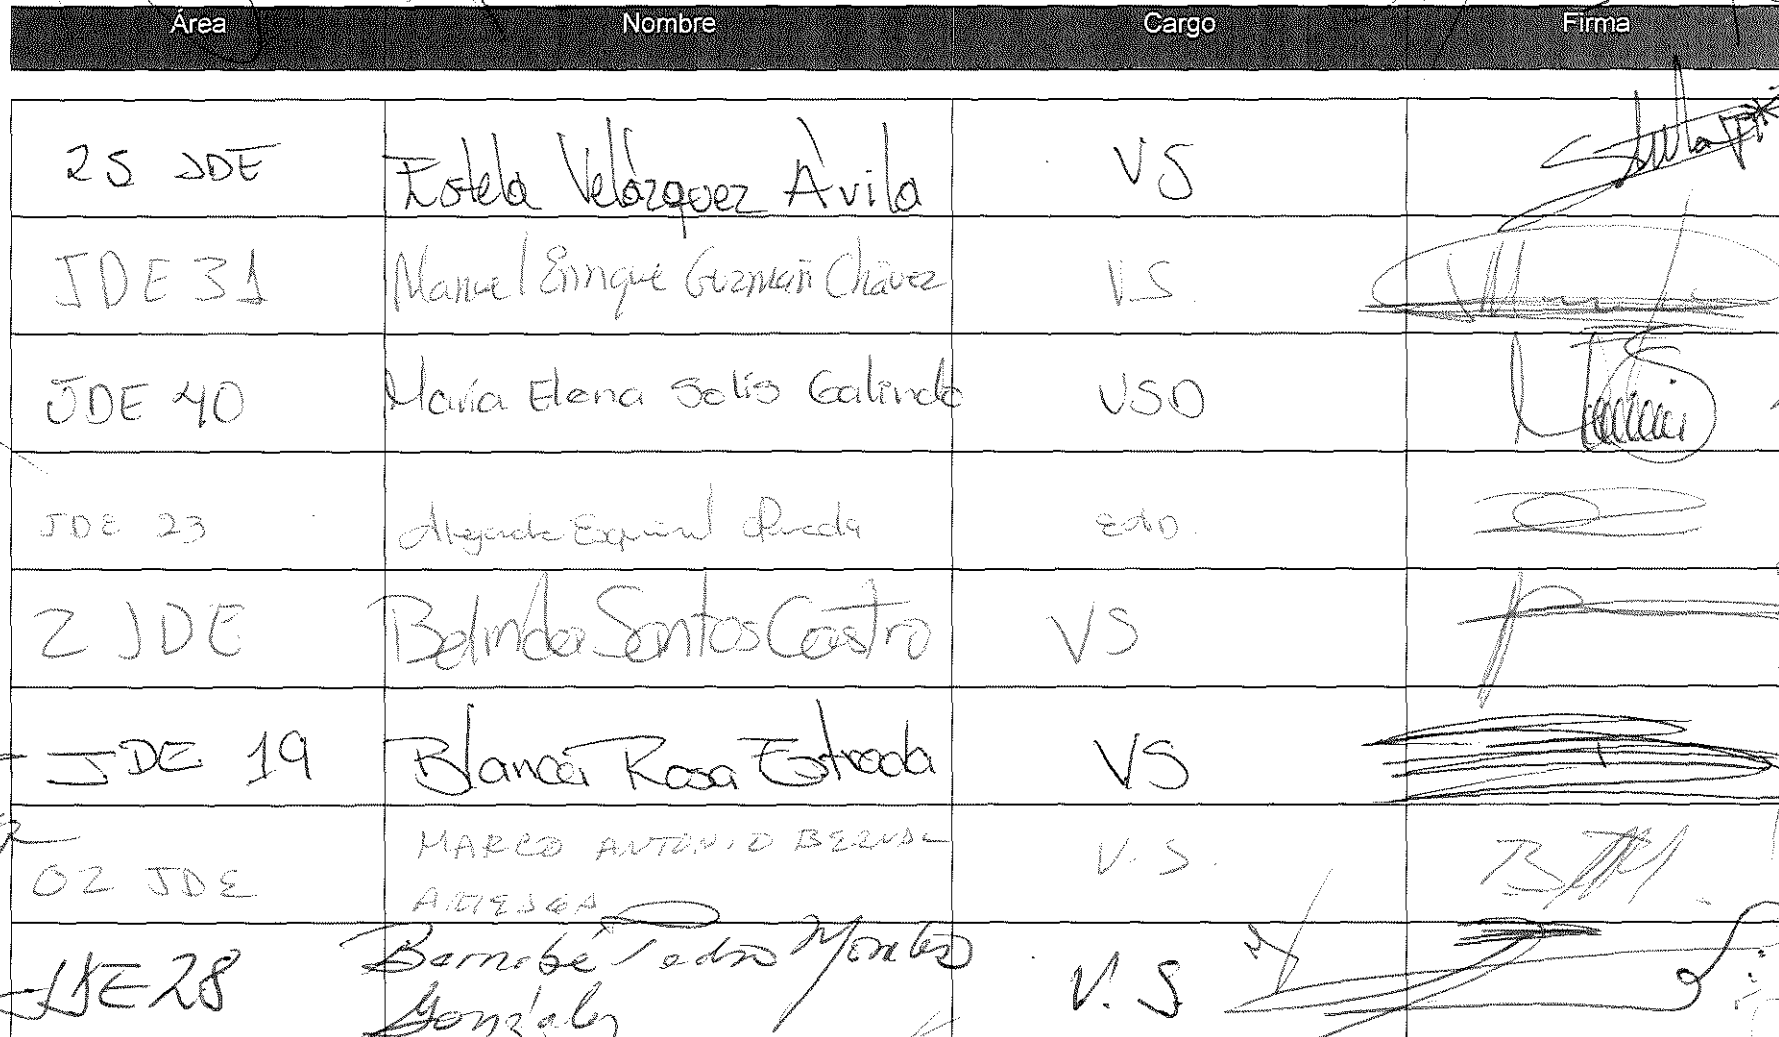 Área Nombre Cargo Firma
25 JDE Estela Velázquez Ávila VS
JDE 31 Manuel Enrique Guzmán Chávez V.S.
JDE 40 María Elena Solís Galindo VSD
JDE 23
2 JDE Belinda Santos Castro VS
JDE 19 Blanca Rosa Estrada VS
02 JDE MARCO ANTONIO BERNAL V.S.
JDE 28 Bernabé Pedro Montes V.S.
González